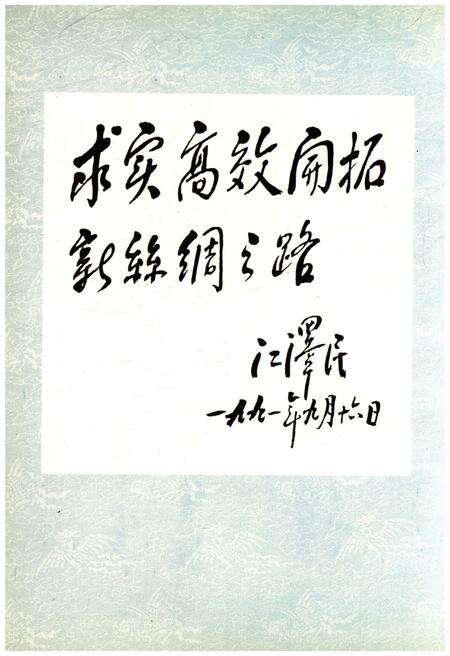 求实高效开拓
新絲绸之路
江澤民
一九九一年九月十六日